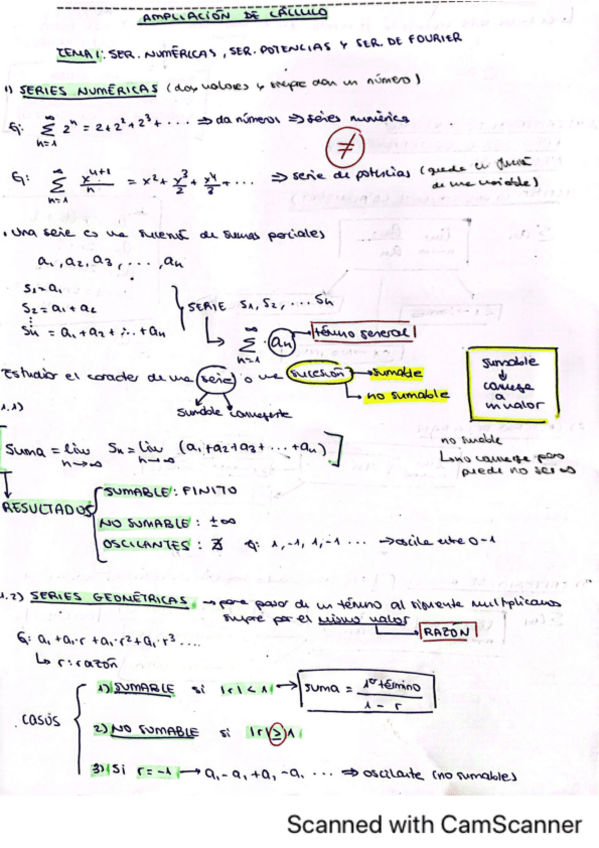 AMPLIACIÓN DE CÁLCULO
TEMA 1: SER. NUMÉRICAS, SER. POTENCIAS Y SER. DE FOURIER
1) SERIES NUMÉRICAS (das valores y siempre dan un número)
Ej: ∞ Σ n=1 2^n = 2+2²+2³+... ⇒ da números ⇒ series numérica
≠
Ej: ∞ Σ n=1 x^(n+1)/n = x²+x³/2+x⁴/3+... ⇒ serie de potencias (queda en función
de una variable)
. Una serie es una sucesión de sumas parciales
a₁, a₂, a₃, ..., aₙ
S₁=a₁
S₂=a₁+a₂
Sₙ = a₁+a₂+...+aₙ
SERIE S₁, S₂, ... Sₙ
∞ Σ n=1 aₙ → término general
Estudiar el carácter de una serie o una sucesión → sumable
no sumable
sumable convergente
sumable
↓
converge
a
un valor
1.1)
Suma = lím n→∞ Sₙ = lím n→∞ (a₁+a₂+a₃+...+aₙ)
no sumable
puede no ser
RESULTADOS
SUMABLE: FINITO
NO SUMABLE: ±∞
OSCILANTES: ∄ Ej: 1,-1,1,-1 ... → oscila entre 0-1
1.2) SERIES GEOMÉTRICAS → para pasar de un término al siguiente multiplicamos
siempre por el mismo valor
RAZÓN
Ej: a₁+a₁·r+a₁·r²+a₁·r³....
↳ r: razón
casos
1) SUMABLE si |r|<1 → suma = 1º término / 1 - r
2) NO SUMABLE si |r|≥1
3) Si r=-1 → a₁-a₁+a₁-a₁ ... ⇒ oscilante (no sumables)
Scanned with CamScanner